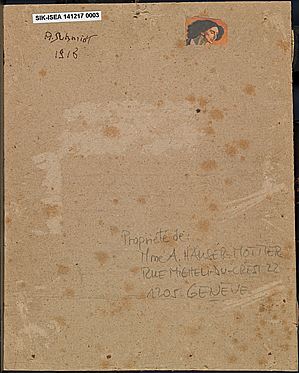 SIK-ISEA 141217 0003
A. Schmidt
1918
Propriété de:
Mme A. HAUSER-MOTTIER
RUE MICHELI-DU-CREST 22
1205. GENEVE